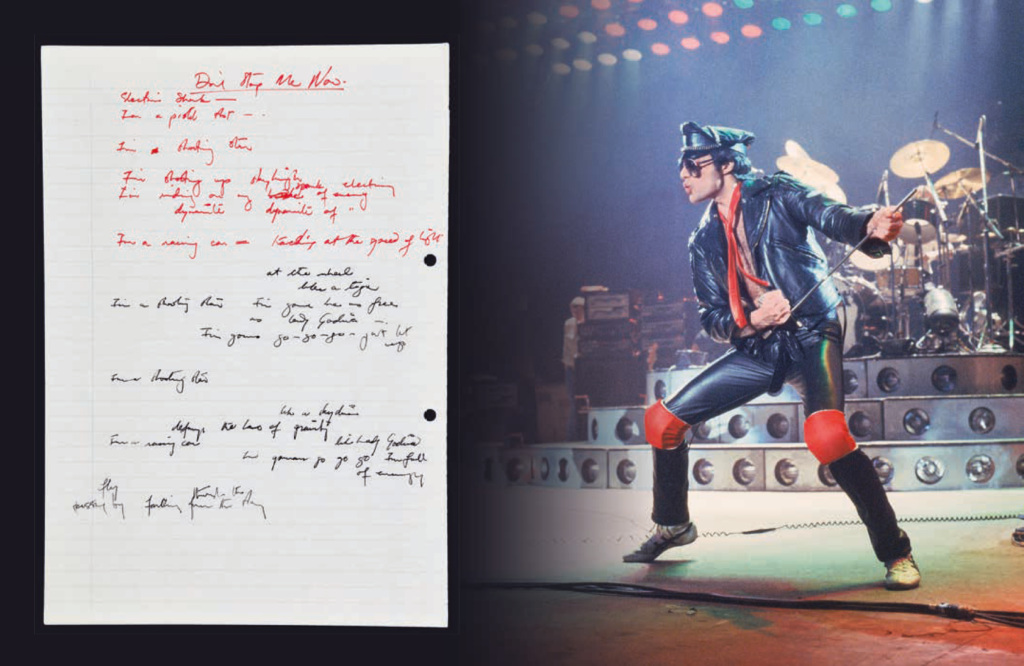 Don't Stop Me Now.
Electric Shock —
I'm a pistol that — ..
I'm a shooting star
I'm shooting up skyhigh
I'm riding on my of energy
sparks electricity
dynamite dynamite of "
I'm a racing car — Hurtling at the speed of light
at the wheel
like a tiger
I'm a shooting star I'm gonna be as free
as lady Godiva —
I'm gonna go-go-go- get let
I'm a shooting star
like a
defying the laws of gravity
I'm a racing car like Lady Godiva
I'm gonna go go go I'm full
of energy
fly through the
passing by from the sky